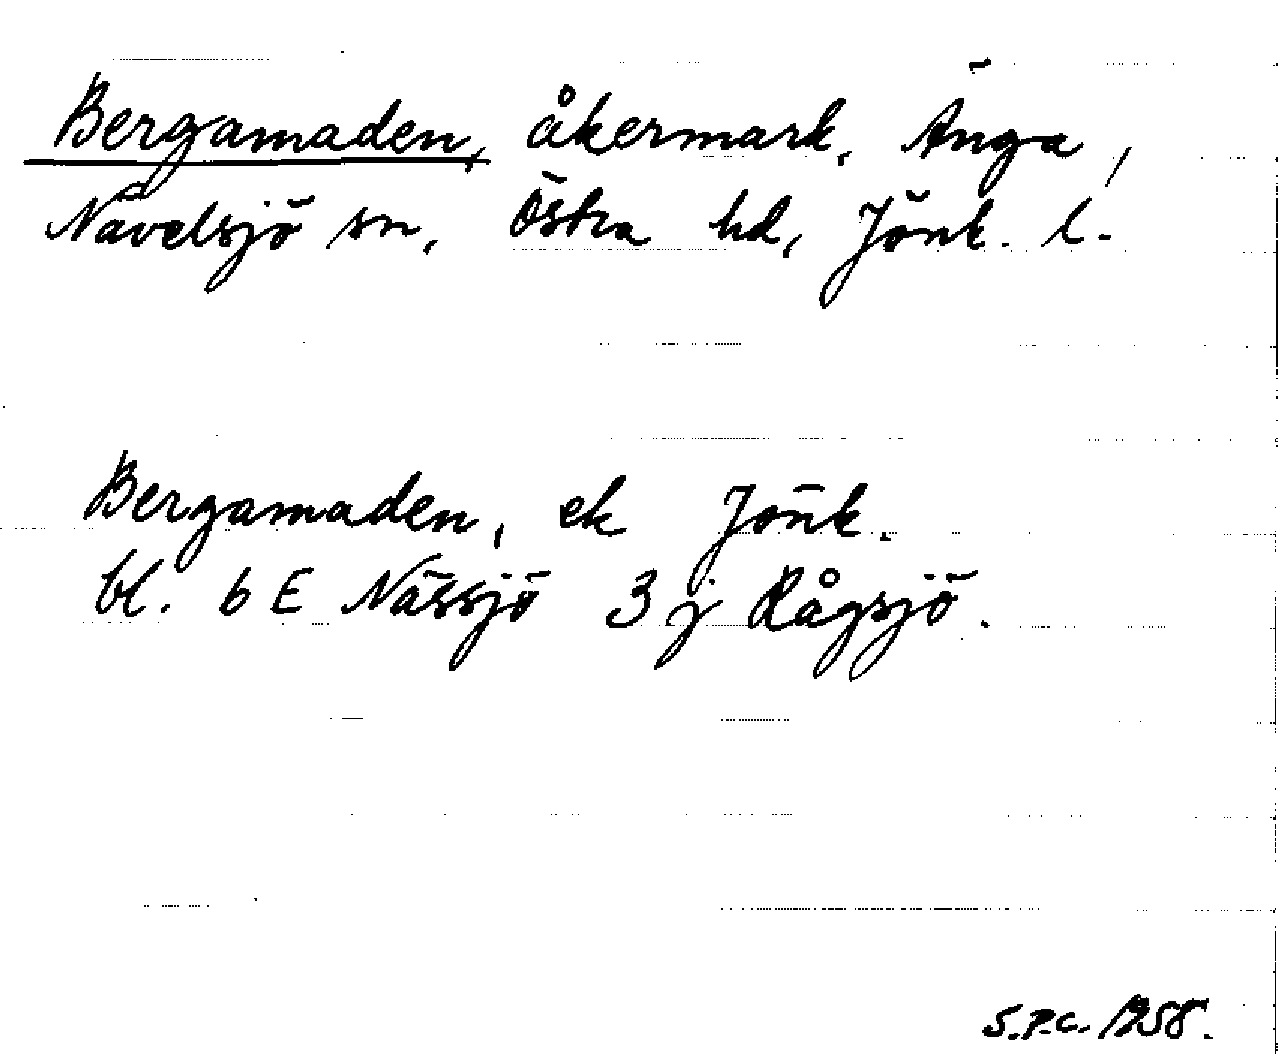 Bergamaden, åkermark, Änga,
Nävelsjö sn, Östra hd, Jönk. l.
Bergamaden, ek Jönk.
bl. 6 E Nässjö 3 j Rågsjö.
S.P.C. 1958.